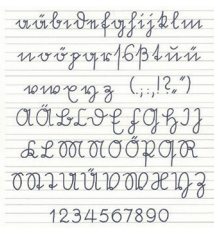 aäbcdefghijklm
noöpqrſsßtuü
vwxyz (.;:,!?„“)
AÄBCDEFGHIJ
KLMNOÖPQR
STUÜVWXYZ
1234567890